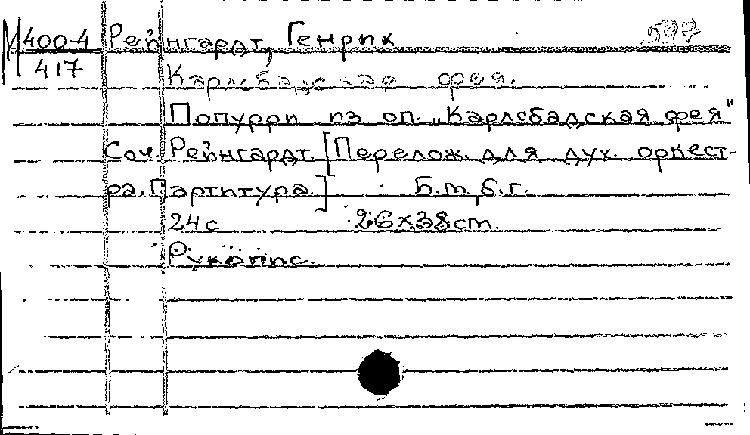 М 400-4 Рейнгардт, Генрик 597
417
Карлсбадская фея.
Попурри из оп. „Карлсбадская фея"
Соч. Рейнгардт. [Перелож. для дух. оркест-
ра. Партитура] Б.м., б.г.
24с 26х38cm.
Рукопис.